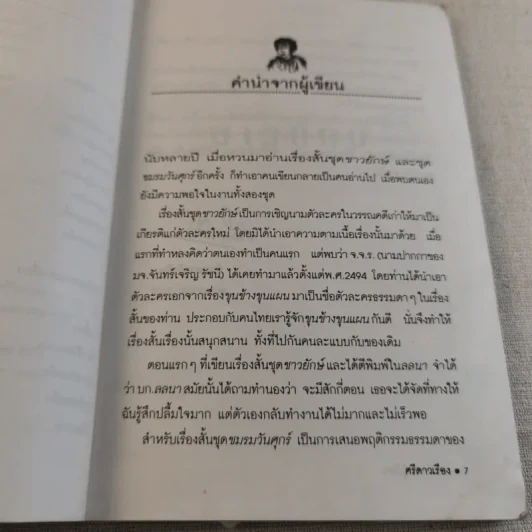 คำนำจากผู้เขียน
นับหลายปี เมื่อหวนมาอ่านเรื่องสั้นชุดชาวยักษ์ และชุด
ชมรมวันศุกร์อีกครั้ง ก็ทำเอาคนเขียนกลายเป็นคนอ่านไป เมื่อพบตนเอง
ยังมีความพอใจในงานทั้งสองชุด
เรื่องสั้นชุดชาวยักษ์เป็นการเชิญนามตัวละครในวรรณคดีเก่าให้มาเป็น
เกียรติแก่ตัวละครใหม่ โดยมิได้นำเอาความตามเนื้อเรื่องนั้นมาด้วย เมื่อ
แรกที่ทำหลงคิดว่าตนเองทำเป็นคนแรก แต่พบว่า จ.จ.ร. (นามปากกาของ
มจ.จันทร์เจริญ รัชนี) ได้เคยทำมาแล้วตั้งแต่พ.ศ.2494 โดยท่านได้นำเอา
ตัวละครเอกจากเรื่องขุนช้างขุนแผน มาเป็นชื่อตัวละครธรรมดาๆ ในเรื่อง
สั้นของท่าน ประกอบกับคนไทยเรารู้จักขุนช้างขุนแผนกันดี นั่นจึงทำให้
เรื่องสั้นเรื่องนั้นสนุกสนาน ทั้งที่ไปกันคนละแบบกับของเดิม
ตอนแรกๆ ที่เขียนเรื่องสั้นชุดชาวยักษ์ และได้ตีพิมพ์ในลลนา จำได้
ว่า บก.ลลนา สมัยนั้นได้ถามทำนองว่า จะมีสักกี่ตอน เธอจะได้จัดที่ทางให้
ฉันรู้สึกปลื้มใจมาก แต่ตัวเองกลับทำงานได้ไม่มากและไม่เร็วพอ
สำหรับเรื่องสั้นชุดชมรมวันศุกร์ เป็นการเสนอพฤติกรรมธรรมดาของ
ศรีดาวเรือง • 7